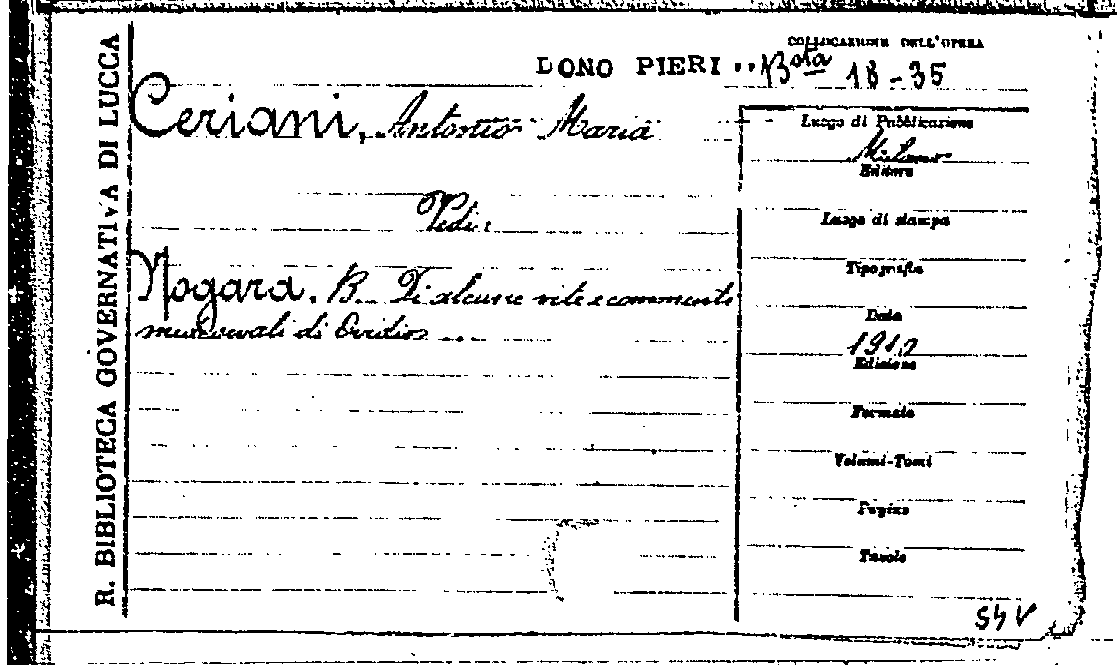 R. BIBLIOTECA GOVERNATIVA DI LUCCA
COLLOCAZIONE DELL'OPERA
DONO PIERI .. Bsta 18-35
Ceriani, Antonio Maria
Vedi:
Nogara. B. Di alcune vite e commenti
medioevali di Ovidio ...
Luogo di Pubblicazione
Milano
Editore
Luogo di stampa
Tipografia
Data
1910
Edizione
Formato
Volumi-Tomi
Pagine
Tavole